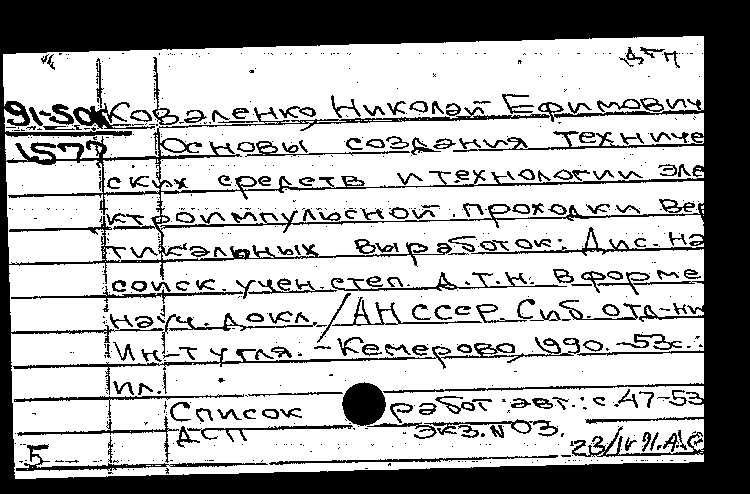 ДСП
91-50к Коваленко, Николай Ефимович
1577 Основы создания техниче
ских средств и технологии эле
ктроимпульсной проходки вер
тикальных выработок: Дис. на
соиск. учен. степ. д.т.н. в форме
науч. докл. / АН СССР Сиб. отд-ни
Ин-т угля. - Кемерово, 1990. -53с.:
ил.
Список работ авт.: с.47-53
ДСП Экз. N 03.
5 23/IV 91.